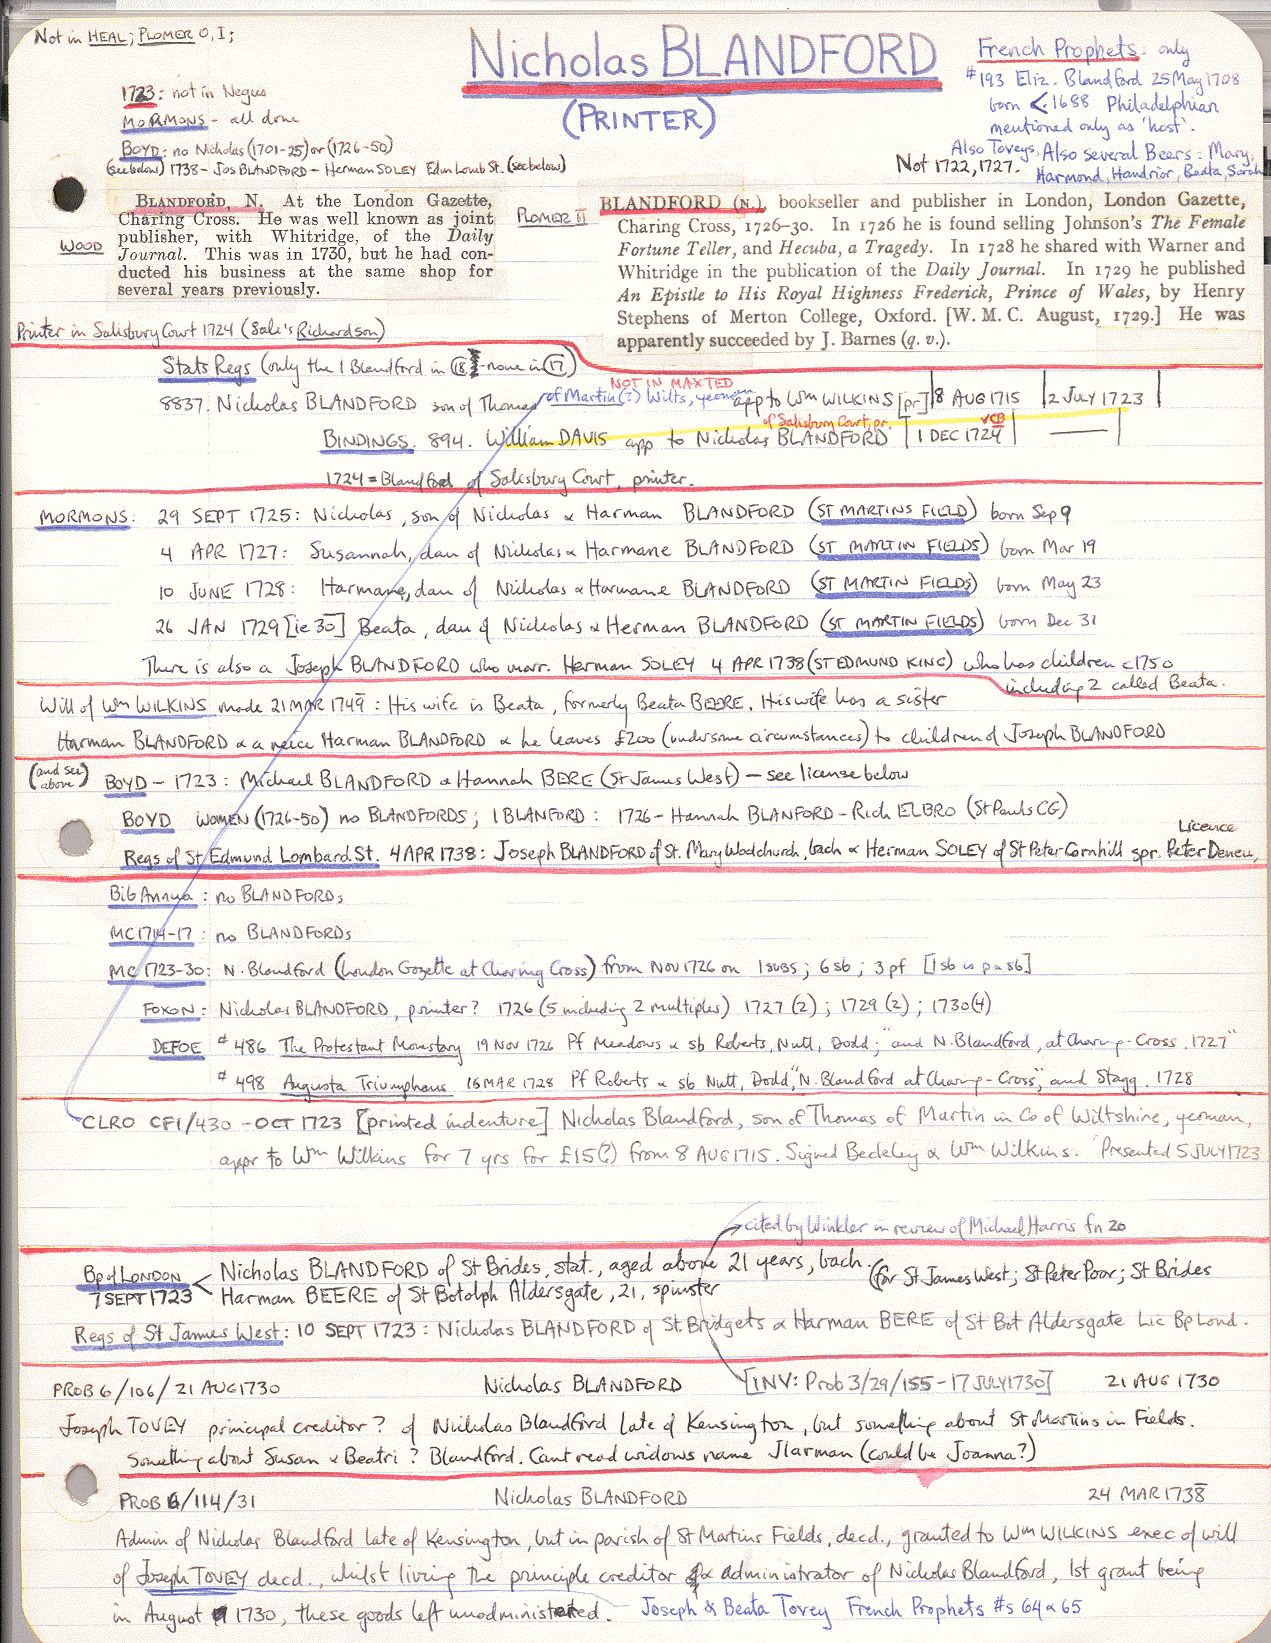 Not in HEAL; PLOMER O, I;
Nicholas BLANDFORD
(PRINTER)
French Prophets: only
#193 Eliz. Blandford 25 May 1708
born <.1688 Philadelphian
mentioned only as 'host'.
Also Toveys, Also several Beers: Mary,
Harmond, Handrior, Beata, Sarah
1723: not in Negus
MORMONS - all done
BOYD: no Nicholas (1701-25) or (1726-50)
(see below) 1738 - Jos BLANDFORD - Herman SOLEY Edm Lomb St. (see below)
Not 1722, 1727.
WOOD
BLANDFORD, N. At the London Gazette,
Charing Cross. He was well known as joint
publisher, with Whitridge, of the Daily
Journal. This was in 1730, but he had con-
ducted his business at the same shop for
several years previously.
PLOMER II
BLANDFORD (N.), bookseller and publisher in London, London Gazette,
Charing Cross, 1726-30. In 1726 he is found selling Johnson's The Female
Fortune Teller, and Hecuba, a Tragedy. In 1728 he shared with Warner and
Whitridge in the publication of the Daily Journal. In 1729 he published
An Epistle to His Royal Highness Frederick, Prince of Wales, by Henry
Stephens of Merton College, Oxford. [W. M. C. August, 1729.] He was
apparently succeeded by J. Barnes (q. v.).
Printer in Salisbury Court 1724 (Sale's Richardson)
Stats Regs (only the 1 Blandford in 18 - none in 17)
NOT IN MAXTED
8837. Nicholas BLANDFORD son of Thomas of Martin(?) Wilts, yeoman app to Wm WILKINS [pr] | 8 AUG 1715 | 2 JULY 1723 |
of Salisbury Court, pr. VCB
BINDINGS. 894. William DAVIS app to Nicholas BLANDFORD | 1 DEC 1724 | —— |
1724 = Blandford of Salisbury Court, printer.
MORMONS: 29 SEPT 1725: Nicholas, son of Nicholas & Harman BLANDFORD (ST MARTINS FIELD) born Sep 9
4 APR 1727: Susannah, dau of Nicholas & Harmane BLANDFORD (ST MARTIN FIELDS) born Mar 19
10 JUNE 1728: Harmane, dau of Nicholas & Harmane BLANDFORD (ST MARTIN FIELDS) born May 23
26 JAN 1729 [ie 30] Beata, dau of Nicholas & Herman BLANDFORD (ST MARTIN FIELDS) born Dec 31
There is also a Joseph BLANDFORD who marr. Herman SOLEY 4 APR 1738 (ST EDMUND KING) who has children c1750
including 2 called Beata.
Will of Wm WILKINS made 21 MAR 1749: His wife is Beata, formerly Beata BEERE. His wife has a sister
Harman BLANDFORD & a neice Harman BLANDFORD & he leaves £200 (under some circumstances) to children of Joseph BLANDFORD
(and see above) BOYD - 1723: Michael BLANDFORD & Hannah BERE (St James West) - see license below
BOYD WOMEN (1726-50) no BLANDFORDS; 1 BLANFORD: 1726 - Hannah BLANFORD - Rich ELBRO (St Pauls CG)
Licence
Regs of St Edmund Lombard St. 4 APR 1738: Joseph BLANDFORD of St. Mary Woolchurch, bach & Herman SOLEY of St Peter Cornhill spr. Peter Deneu,
Bib Annua: no BLANDFORDs
MC 1714-17: no BLANDFORDs
MC 1723-30: N. Blandford (London Gazette at Charing Cross) from NOV 1726 on 1 subs; 6 sb; 3 pf [1 sb is p & sb]
FOXON: Nicholas BLANDFORD, printer? 1726 (5 including 2 multiples) 1727 (2); 1729 (2); 1730 (4)
DEFOE #486 The Protestant Monastery 19 NOV 1726 Pf Meadows & sb Roberts, Nutt, Dodd; "and N. Blandford, at Charing-Cross. 1727"
#498 Augusta Triumphans 16 MAR 1728 Pf Roberts & sb Nutt, Dodd, "N. Blandford at Charing-Cross," and Stagg. 1728
CLRO CF1/430 - OCT 1723 [printed indenture] Nicholas Blandford, son of Thomas of Martin in Co of Wiltshire, yeoman,
appr to Wm Wilkins for 7 yrs for £15(?) from 8 AUG 1715. Signed Beckley & Wm Wilkins. 'Presented 5 JULY 1723
cited by Winkler in review of Michael Harris fn 20
Bp of LONDON
7 SEPT 1723
Nicholas BLANDFORD of St Brides, stat., aged above 21 years, bach.
Harman BEERE of St Botolph Aldersgate, 21, spinster
(for St James West; St Peter Poor; St Brides
Regs of St James West: 10 SEPT 1723: Nicholas BLANDFORD of St. Bridgets & Harman BERE of St Bot Aldersgate Lic Bp Lond.
PROB 6/106/21 AUG 1730 Nicholas BLANDFORD [INV: Prob 3/29/155 - 17 JULY 1730] 21 AUG 1730
Joseph TOVEY principal creditor? of Nicholas Blandford late of Kensington, but something about St Martins in Fields.
Something about Susan & Beatri? Blandford. Cant read widows name Jlarman (could be Joanna?)
PROB 6/114/31 Nicholas BLANDFORD 24 MAR 1738
Admin of Nicholas Blandford late of Kensington, but in parish of St Martins Fields, decd., granted to Wm WILKINS exec of will
of Joseph TOVEY decd., whilst living the principle creditor & administrator of Nicholas Blandford, 1st grant being
in August 1730, these goods left unadministered. - Joseph & Beata Tovey French Prophets #s 64 & 65